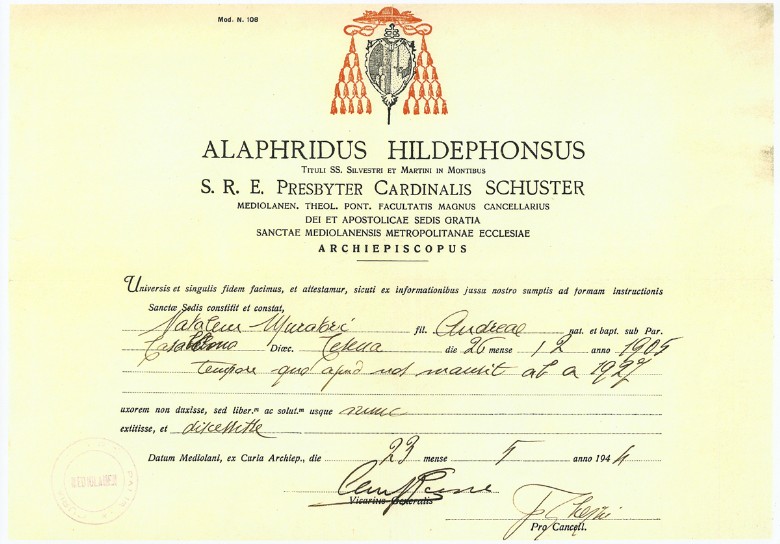 Mod. N. 108
ALAPHRIDUS HILDEPHONSUS
TITULI SS. SILVESTRI ET MARTINI IN MONTIBUS
S. R. E. PRESBYTER CARDINALIS SCHUSTER
MEDIOLANEN. THEOL. PONT. FACULTATIS MAGNUS CANCELLARIUS
DEI ET APOSTOLICAE SEDIS GRATIA
SANCTAE MEDIOLANENSIS METROPOLITANAE ECCLESIAE
ARCHIEPISCOPUS
Universis et singulis fidem facimus, et attestamur, sicuti ex informationibus jussu nostro sumptis ad formam instructionis
Sanctæ Sedis constitit et constat,
Natalem Muratori fil. Andreae nat. et bapt. sub Par.
Diœc. Cesena die 26 mense 12 anno 1905
tempore quo apud nos mansit ab a 1927
uxorem non duxisse, sed liber.m ac solut.m usque nunc
extitisse, et discessisse
Datum Mediolani, ex Curia Archiep., die 23 mense 5 anno 1944
Vicarius Generalis
Pro Cancell.